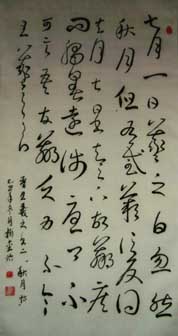 七月一日羲之白忽然
秋月但有感歎信反得
去月七日書知足下故羸疾
問觸暑遠涉憂卿不
可言吾故羸乏力不具
王羲之白
秋月帖